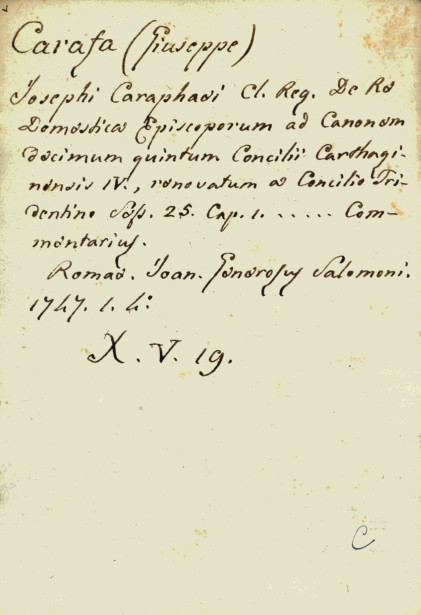 Carafa (Giuseppe)
Josephi Caraphaei Cl. Reg. De Re
Domestica Episcoporum ad Canonem
decimum quintum Concilii Carthagi-
nensis IV., renovatum a Concilio Tri-
dentino Sess. 25. Cap. 1. ..... Com-
mentarius.
Romae. Joan. Generosus Salomoni.
1747. 1. 4.º
X. V. 19.
C